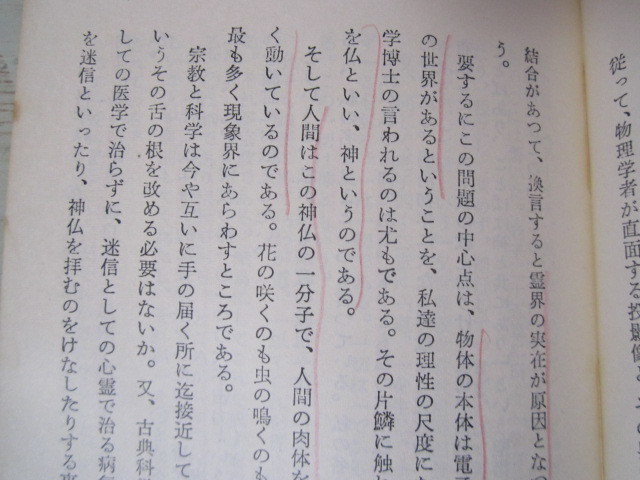 従って、物理学者が直面する投影像
結合があつて、渙言すると霊界の実在が原因となつ
う。
要するにこの問題の中心点は、物体の本体は電子
の世界があるということを、私達の理性の尺度に
学博士の言われるのは尤もである。その片鱗に触れ
を仏といい、神というのである。
そして人間はこの神仏の一分子で、人間の肉体を
く動いているのである。花の咲くのも虫の鳴くのも
最も多く現象界にあらわすところである。
宗教と科学は今や互いに手の届く所に迄接近して
いうその舌の根を改める必要はないか。又、古典科
しての医学で治らずに、迷信としての心霊で治る病気
を迷信といったり、神仏を拝むのをけなしたりする